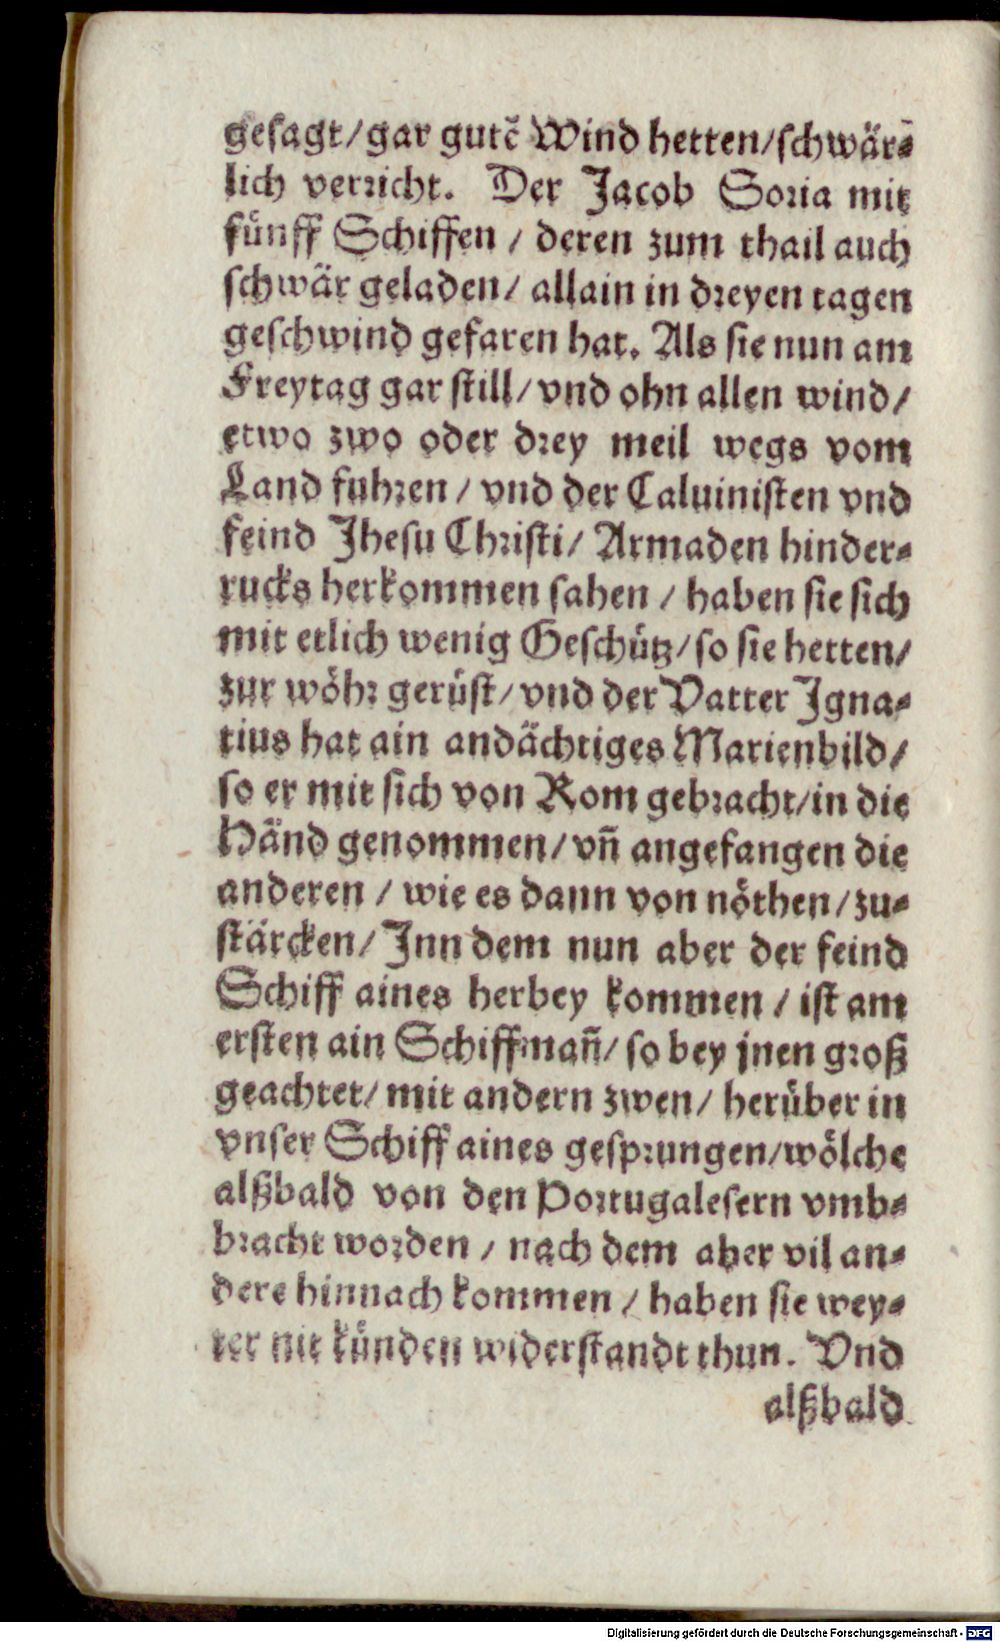 gesagt/ gar gutē Wind hetten/ schwär-
lich verricht. Der Jacob Soria mit
fünff Schiffen / deren zum thail auch
schwär geladen/ allain in dreyen tagen
geschwind gefaren hat. Als sie nun am
Freytag gar still/ vnd ohn allen wind/
etwo zwo oder drey meil wegs vom
Land fuhren / vnd der Caluinisten vnd
feind Jhesu Christi/ Armaden hinder-
rucks herkommen sahen / haben sie sich
mit etlich wenig Geschütz/ so sie hetten/
zur wöhr gerüst/ vnd der Vatter Jgna-
tius hat ain andächtiges Marienbild/
so er mit sich von Rom gebracht/ in die
Händ genommen/ vn̄ angefangen die
anderen / wie es dann von nöthen/ zu-
stärcken/ Jnn dem nun aber der feind
Schiff aines herbey kommen / ist am
ersten ain Schiffman̄/ so bey jnen groß
geachtet/ mit andern zwen/ herüber in
vnser Schiff aines gesprungen/ wölche
alßbald von den Portugalesern vmb-
bracht worden / nach dem aber vil an-
dere hinnach kommen / haben sie wey-
ter nit künden widerstandt thun. Vnd
alßbald
Digitalisierung gefördert durch die Deutsche Forschungsgemeinschaft - DFG